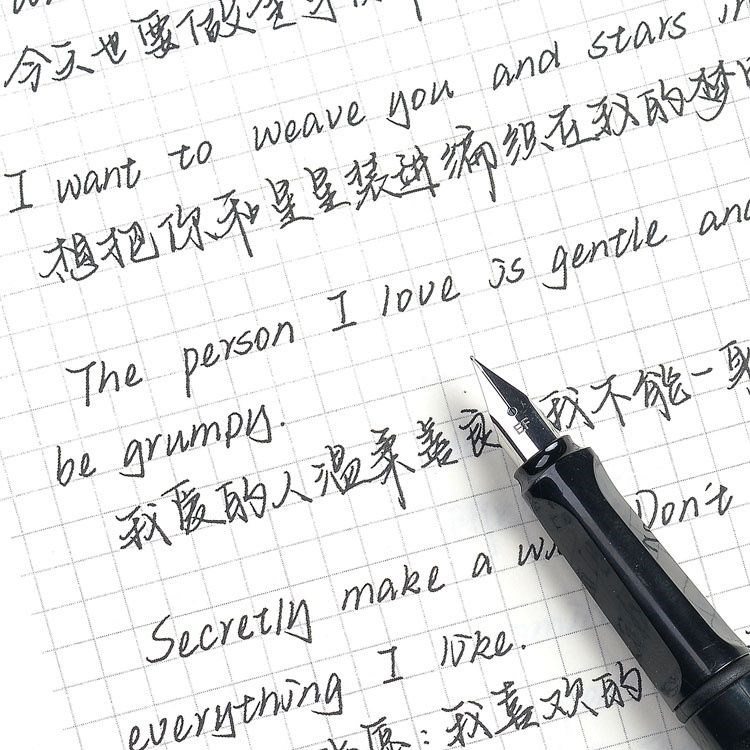 今天也要做
I want to weave you and stars in
想把你和星星装进编织在我的梦
The person I love is gentle and
be grumpy.
我爱的人温柔善良 我不能一
Secretly make a Don't
everything I like.
愿：我喜欢的
EF